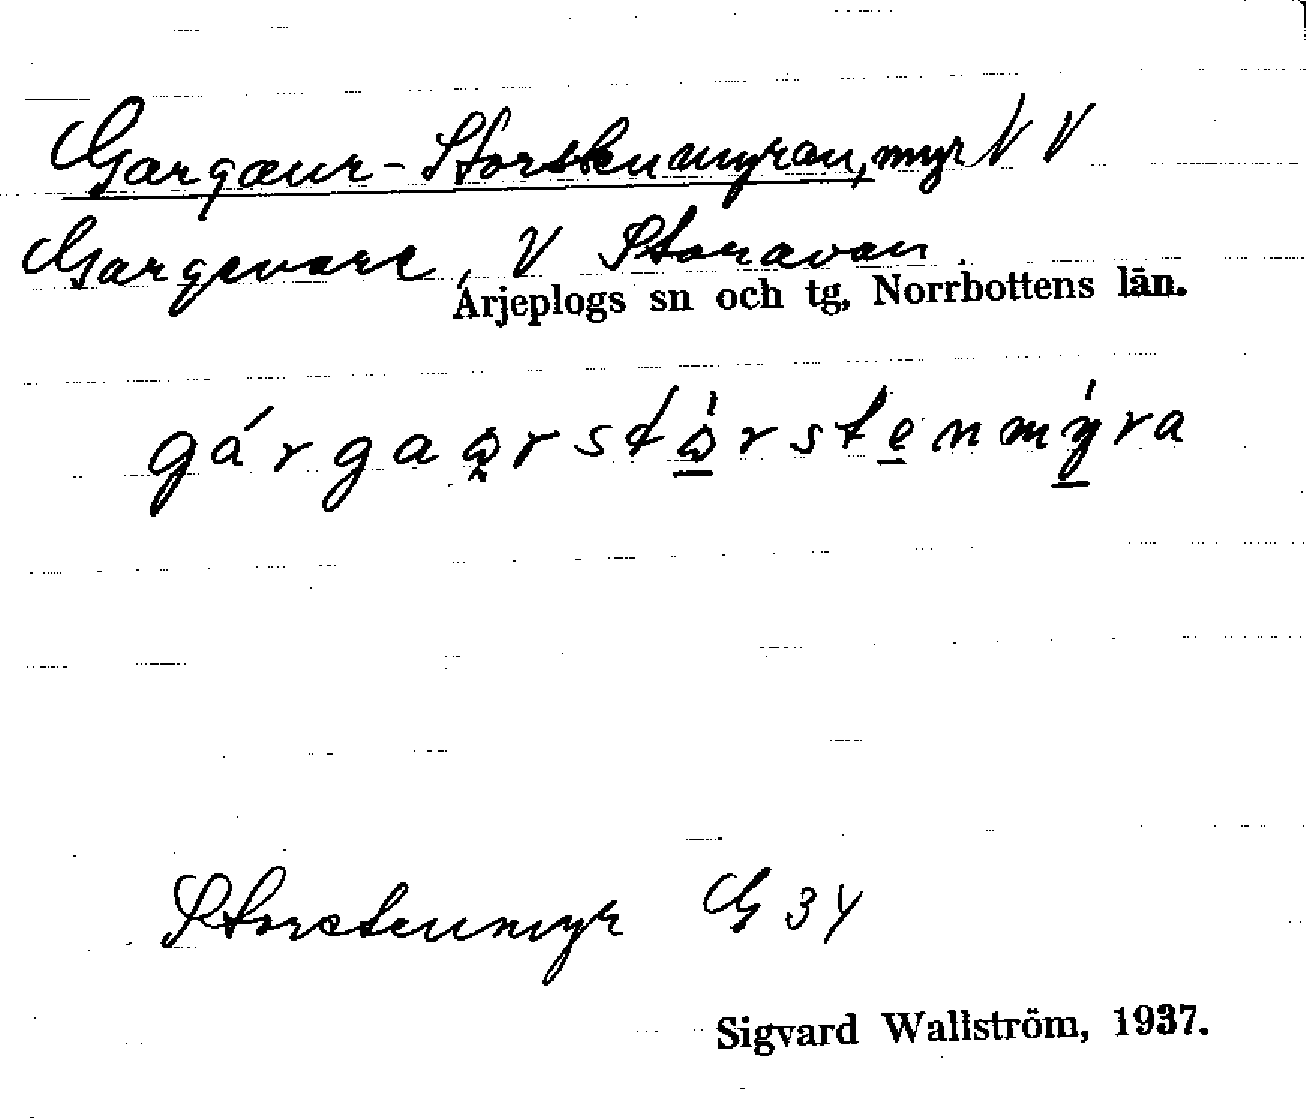 Gargaur-Storstenmyran, myr N V
Gargevare, V Storavan.
Arjeplogs sn och tg, Norrbottens län.
gárgaꞷrstꞷ́rstenmýra
Storstenmyr G 34
Sigvard Wallström, 1937.